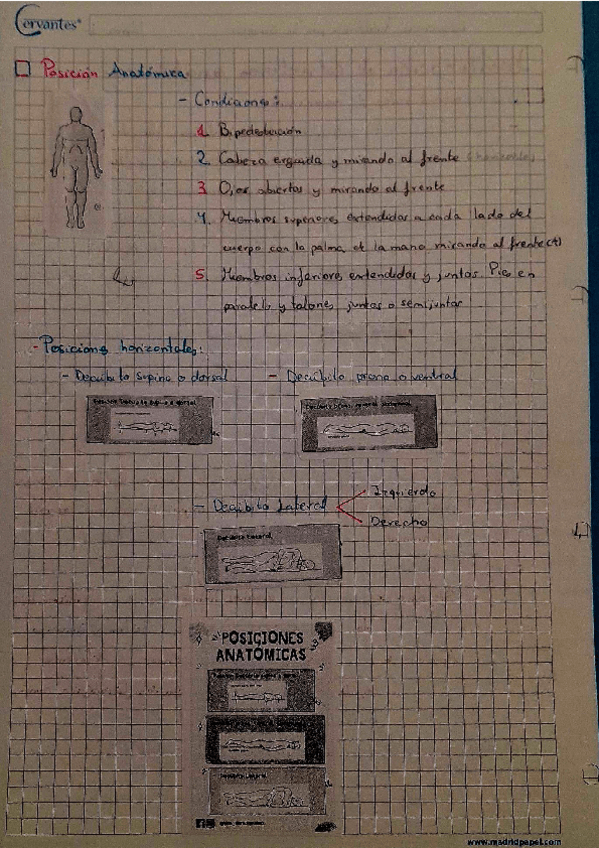 Cervantes
Posición Anatómica
- Condiciones:
1. Bipedestación
2. Cabeza erguida y mirando al frente
3. Ojos abiertos y mirando al frente
4. Miembros superiores extendidos a cada lado del
cuerpo con la palma de la mano mirando al frente
5. Miembros inferiores extendidos y juntos. Pies en
paralelo y talones juntos o semijuntos
- Posiciones horizontales:
- Decúbito supino o dorsal
- Decúbito prono o ventral
- Decúbito Lateral
Izquierdo
Derecho
Decúbito Lateral
POSICIONES
ANATÓMICAS
www.madridpapel.com